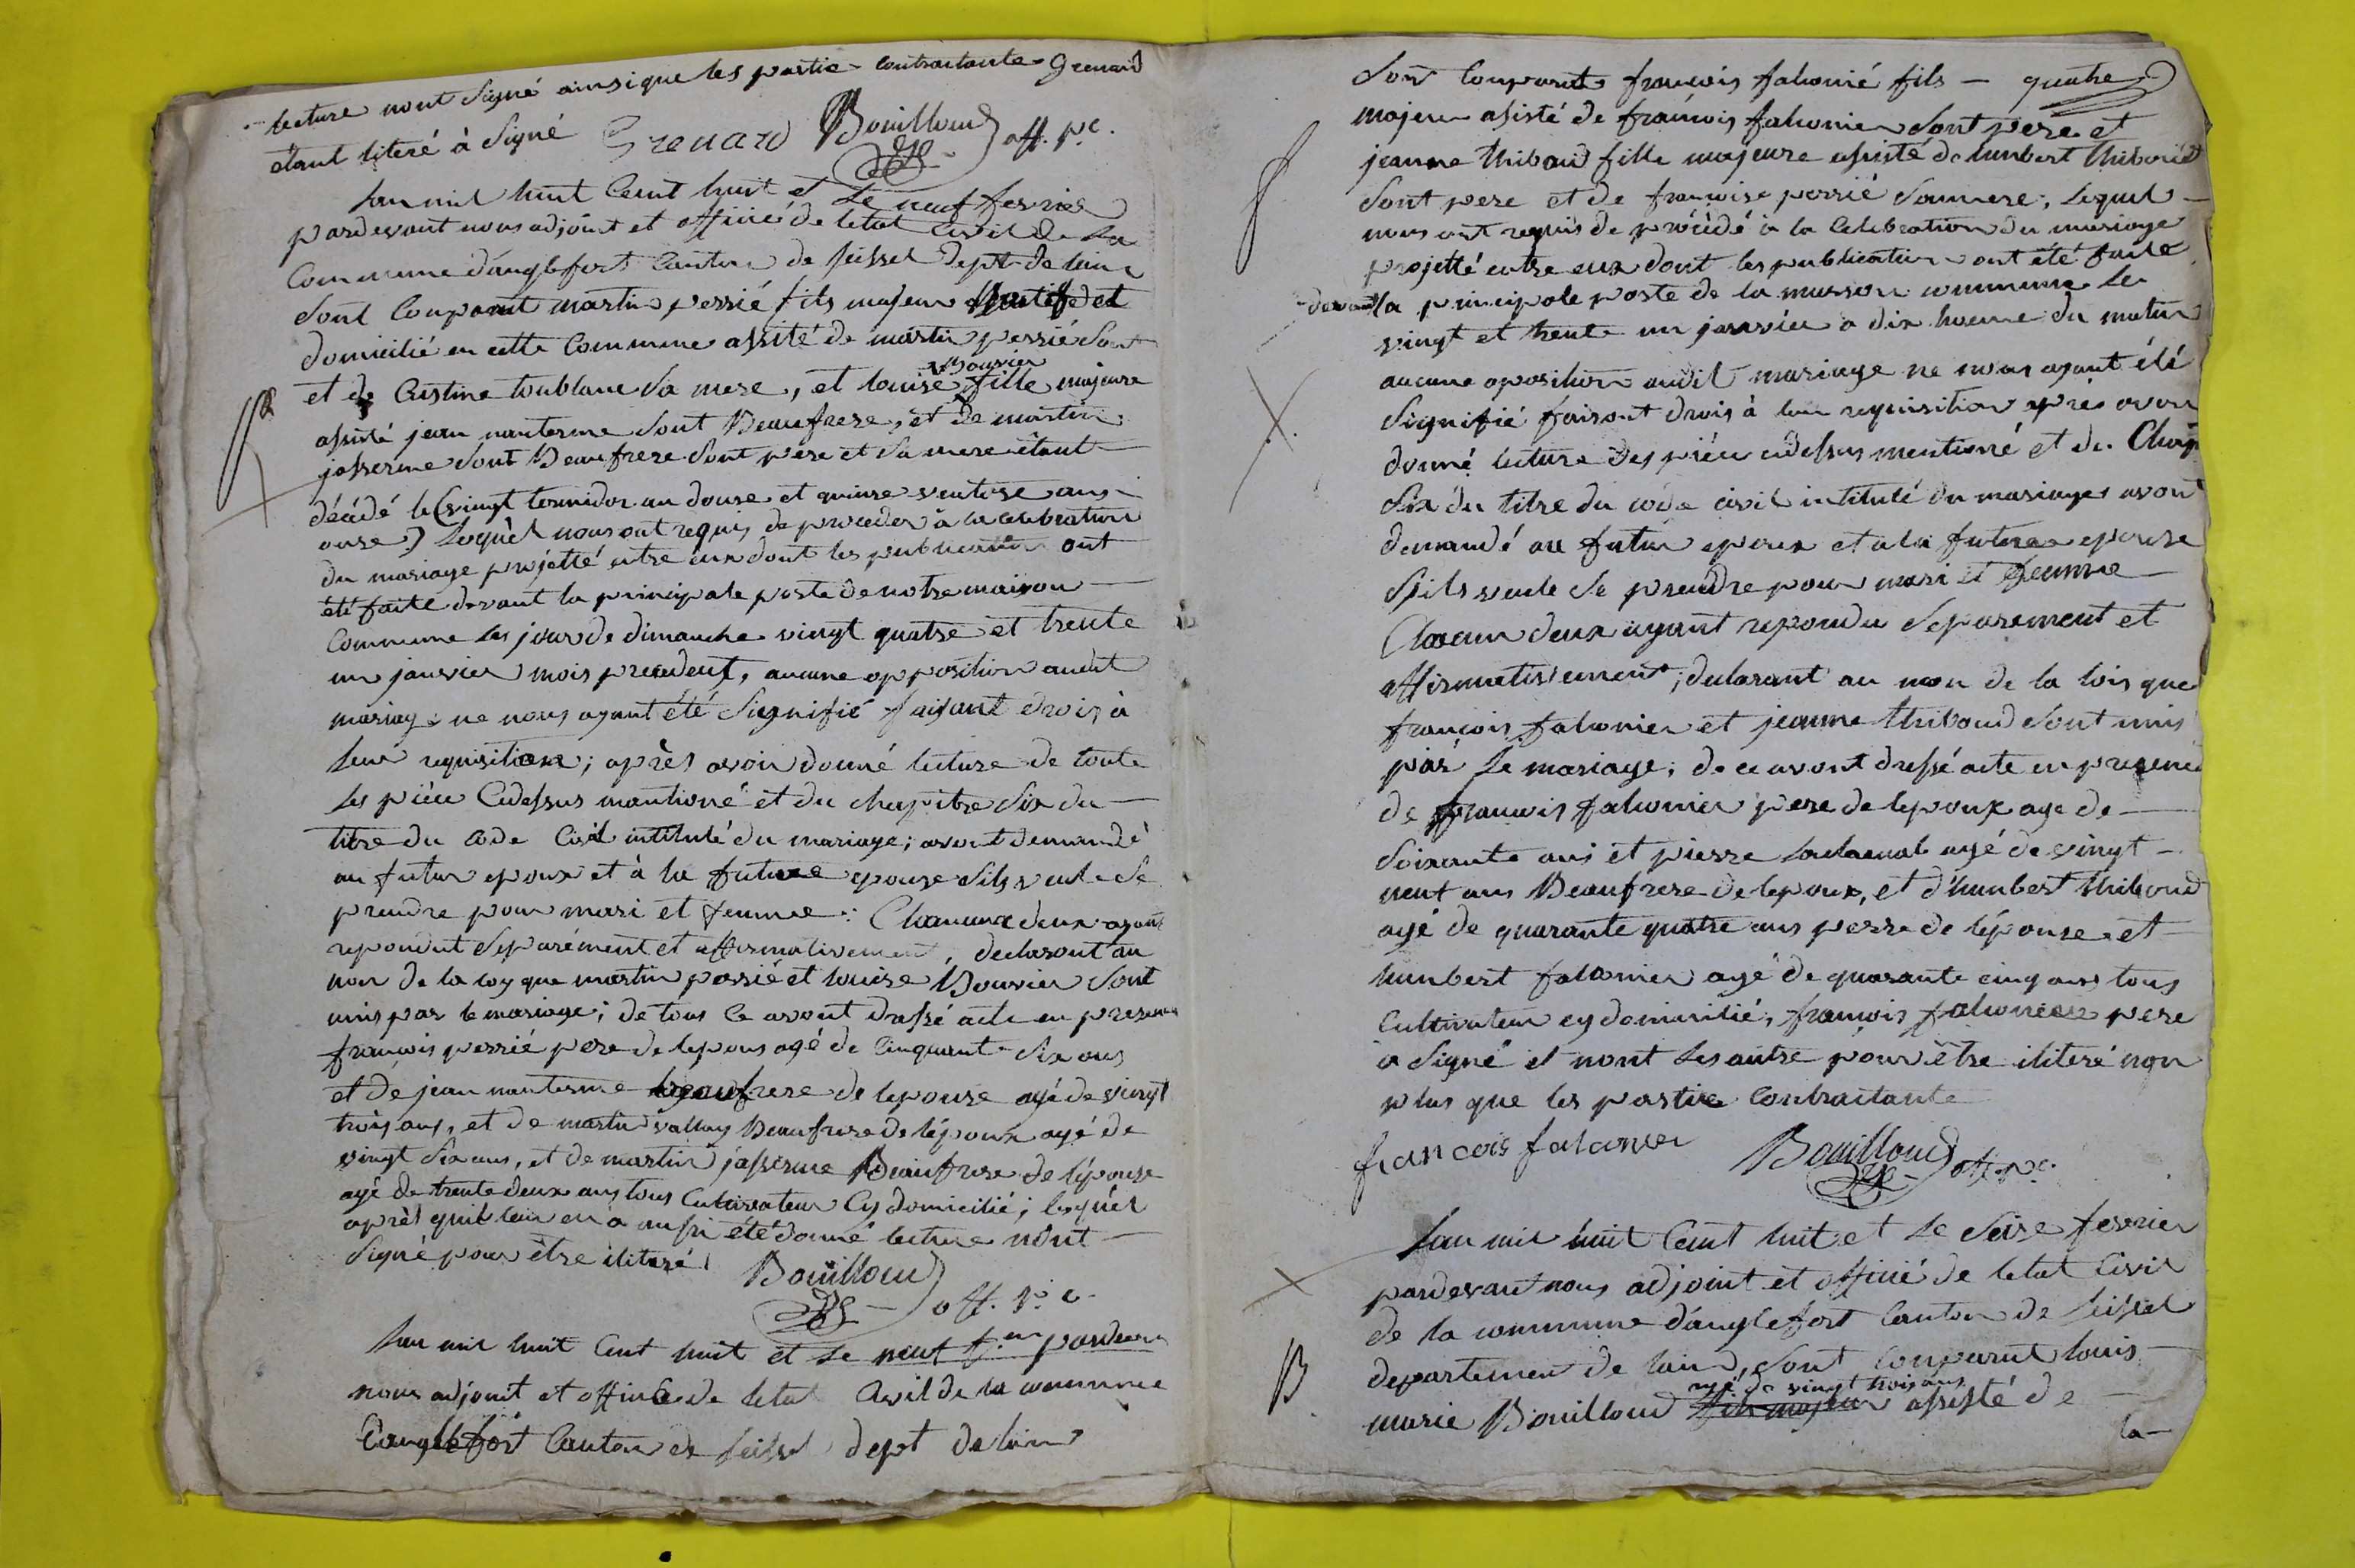 lecture nont Signé ainsi que les partie contractante Grenard
étant literé à Signé Grenard Bouilloud off. p.c.
Lan mil huit Cent huit et Le neuf fevrier
pardevant nous adjoint et officié de letat Civil de La
Commune d'anglefort Canton de seissel Dept de lain
Sont Comparut martin perrié fils majeur et
domicilié en cette Commune assité de martin perrié Sont
Bouvier
et de Cristine toublanc Sa mere, et louise fille majeure
assité jean nanterme Sont Beaufrere, et de martin
jasserme Sont Beaufrere Sont pere et Sa mere étant
décédé le (vingt termidor an douse et quinse ventose ans
onse) Lequèl nous ont requis de proceder à la celebration
du mariage projetté entre eux dont les publication ont
été faite devant la principale porte de notre maison
Commune les jour de dimanche vingt quatre et trente
un janvier mois precedent, aucune opposition audit
mariage ne nous ayant été Signifié faisant drois à
leur requisition; après avoir donné lecture de toute
les pièce Cidessus mantioné et du chapitre Six du
titre du Code Civil intitulé du mariage; avont demandé
au futur epoux et à la future epouse Sils veule Se
prendre pour mari et femme: Chaucun deux ayant
repondut Séparément et affirmativement, declaront au
non de la loy que martin perrié et louise Bouvier Sont
unis par le mariage; de tous Ce avont drassé acte en presence
francois perrié pere de lepous agé de Cinquante Six ans
et de jean nanterme beaufrere de lepouse agé de vingt
trois ans, et de martin vallay Beaufrere de lépoux agé de
vingt Six ans, et de martin jasserme Beaufrere de lépouse
agé de trente deux ans tous Cultivateur Cy domicilié; lesquèl
après quil leur en a aussi été donné lecture nont
Signé pour être iliteré. Bouilloud
off. p.c.
Lan mil huit Cent huit et Le neuf f.er pardevant
nous adjoint et officié de letat Civil de la commune
d'anglefort Canton de seissel dept de lain
Sont Comparut françois falconié fils — quatre
majeur asisté de françois falconier Sont pere et
jeanne thiboud fille majeure assisté de humbert thiboud
Sont pere et de françoise perrié Sa mere, Lequel
nous ont requis de procédé à la Celebration du mariage
projetté entre eux dont les publication ont été faite
devant la principale porte de la maison commune Le
vingt et trente un janvier a dix heure du matin
aucune oposition audit mariage ne nous ayant été
Signifié faisont drois à leur requisition après avoir
donné lecture des pièce cidessus mentioné et du Chap
Six du titre du code civil intitulé du mariage avont
demandé au futur epoux et a la future epouse
Sils veule Se prendre pour mari et femme
Chacun deux ayant repondu Separement et
affirmativement; declarant au non de la lois que
françois falconier et jeanne thiboud Sont unis
par Le mariage; de ce avont dressé acte en presence
de françois falconier pere de lepoux age de
Soixante ans et pierre agé de vingt
neut ans Beaufrere de lepoux, et d'humbert thiboud
agé de quarante quatre ans perre de lépouse et
humbert falconier agé de quarante cinq ans tous
Cultivateur cy domicilié, françois falconier pere
a Signé et nont Les autre pour être iliteré non
plus que les partie Contractante
francois falconier Bouilloud off. p.c.
Lan mil huit Cent huit et Le Seise fevrier
pardevant nous adjoint et officié de letat Civil
de la commune d'anglefort Canton de Seissel
departemen de lain, Sont Comparut louis
agé de vingt trois ans
marie Bouilloud fils majeur assisté de
la
B